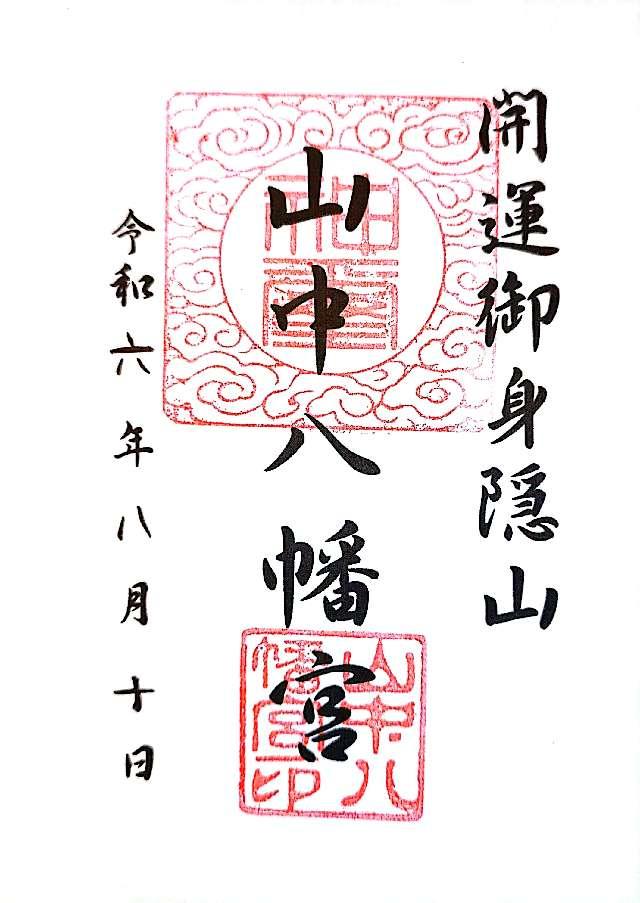 開運御身隠山
山中八幡宮
山中八幡宮印
令和六年八月十日